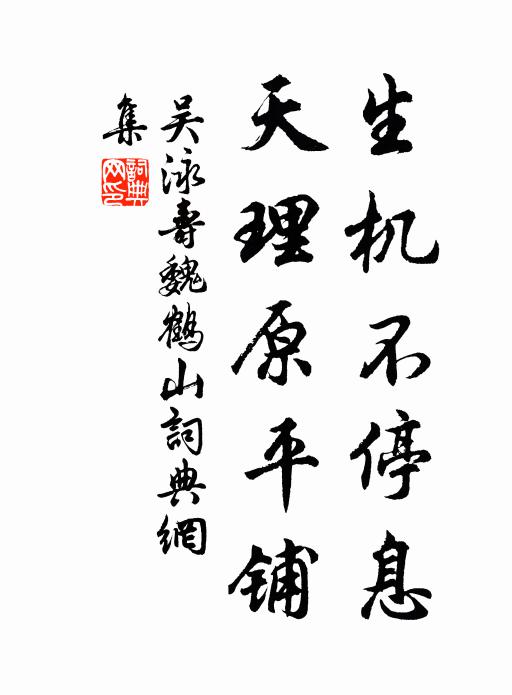 生机不停息
天理原平铺
吴泳寿魏鹤山詞典網
集
詞典
网印